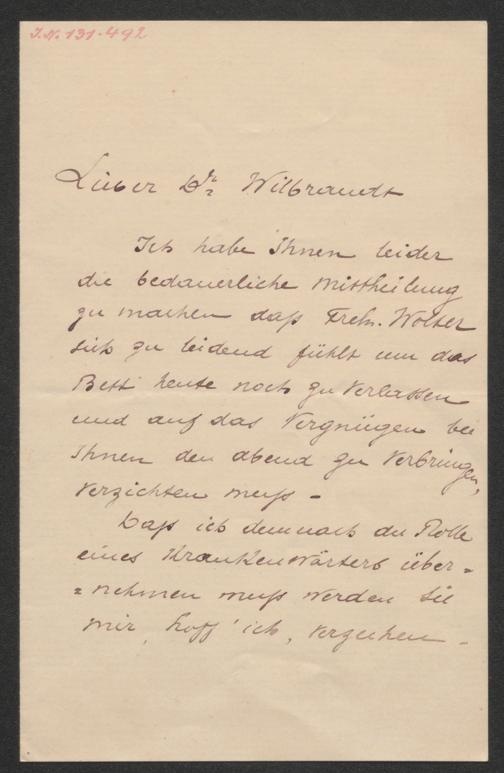 I.N. 131.492
Lieber Dr Wilbrandt
Ich habe Ihnen leider
die bedauerliche Mittheilung
zu machen daß Freln. Wolter
sich zu leidend fühlt um das
Bett heute noch zu verlassen
und auf das Vergnügen bei
Ihnen den abend zu verbringen,
verzichten muß -
Daß ich demnach die Rolle
eines Krankenwärters über=
=nehmen muß werden Sie
mir, hoff' ich, verzeihen -